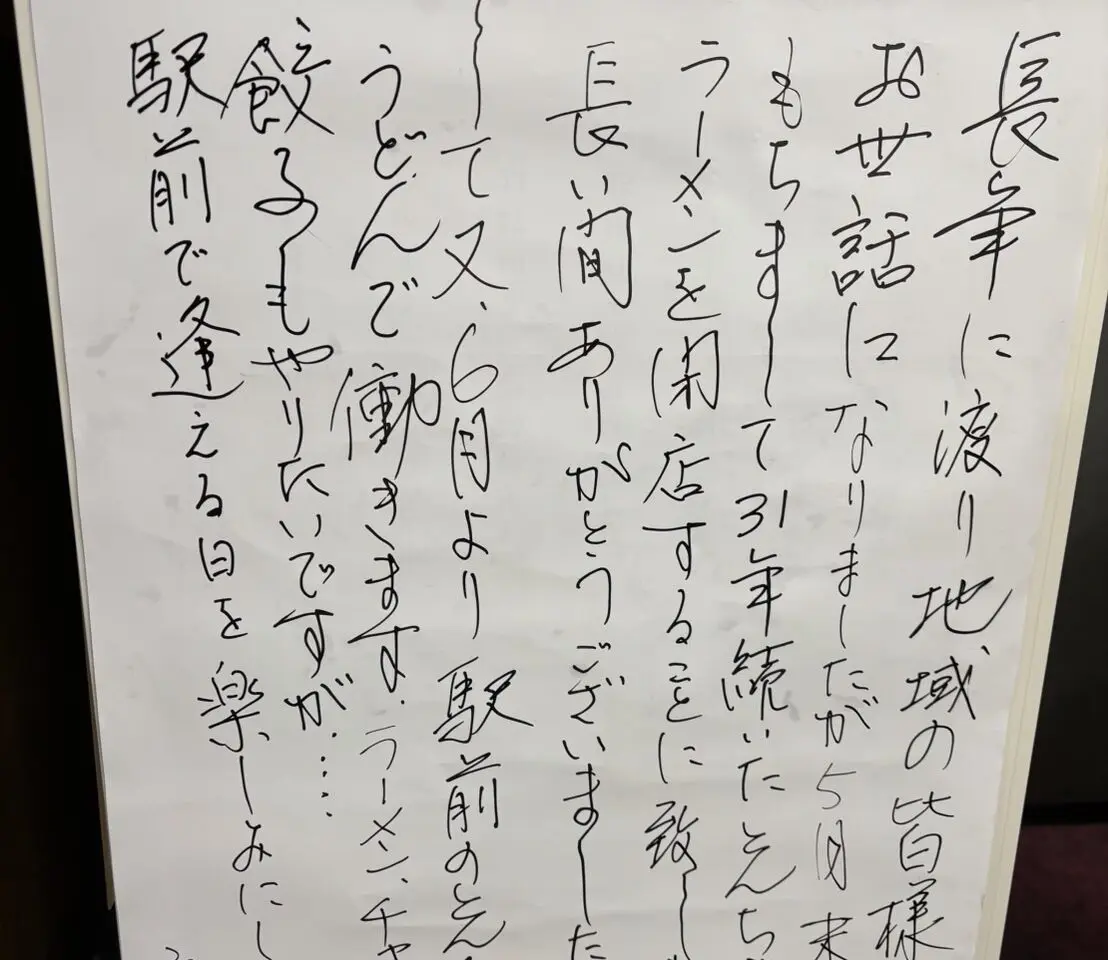 長年に渡り地域の皆様
お世話になりましたが5月末
もちまして31年続いたとんち
ラーメンを閉店することに致し
長い間ありがとうございました
して又、6月より駅前のとん
うどんで働きます、ラーメン、チャ
餃子もやりたいですが.....
駅前で逢える日を楽しみにし